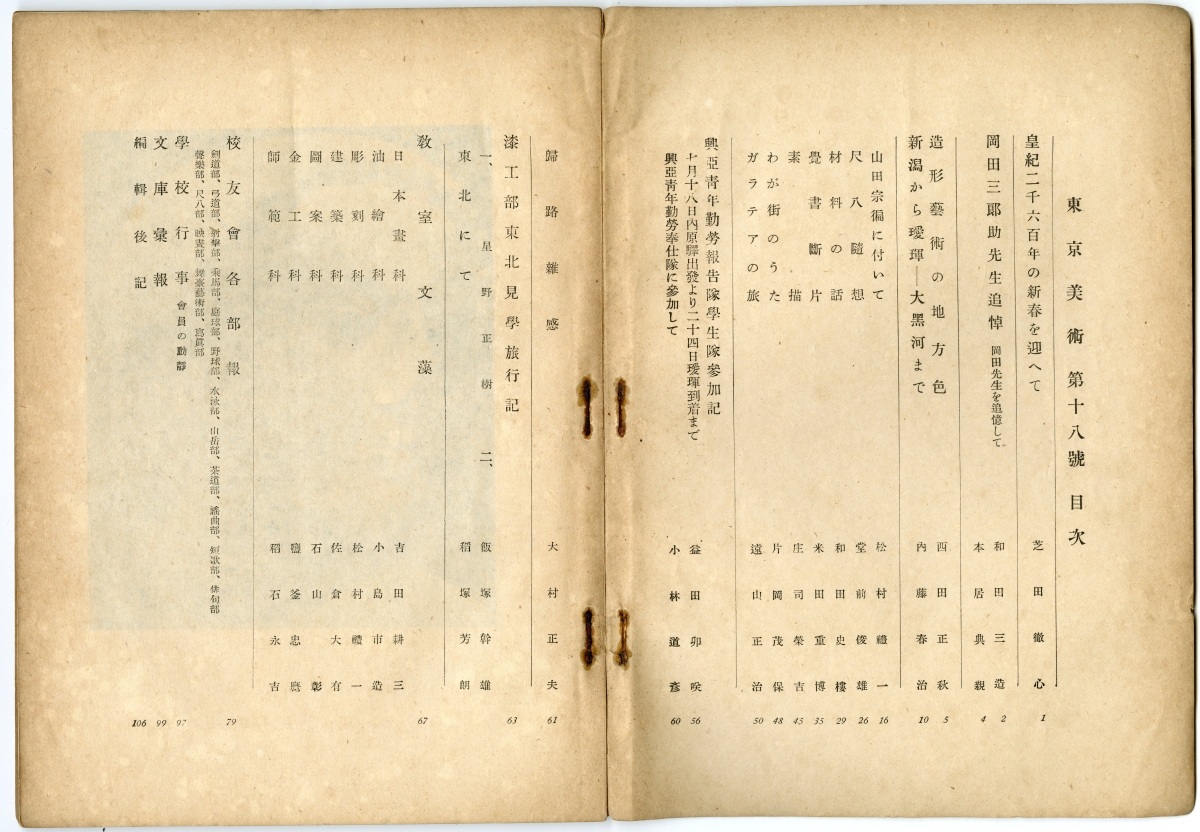 東京美術第十八號目次
皇紀二千六百年の新春を迎へて 芝田徹心 1
岡田三郞助先生追悼 和田三造 2
岡田先生を追憶して 本居典親 4
造形藝術の地方色 西田正秋 5
新潟から璦琿―大黑河まで 內藤春治 10
山田宗徧に付いて 松村禮一 16
尺八隨想 堂前俊雄 26
材料の話 和田史樓 29
覺書斷片 米田重博 35
素描 庄司榮吉 45
わが街のうた 片岡茂保 48
ガラテアの旅 遠山正治 50
興亞靑年勤勞報告隊學生隊參加記
七月十八日內原驛出發より二十四日璦琿到着まで 益田卯咲 56
興亞靑年勤勞奉仕隊に參加して 小林道彥 60
歸路雜感 大村正夫 61
漆工部東北見學旅行記 63
一、星野正樹 二、飯塚幹雄
東北にて 稻塚芳朗
敎室文藻 67
日本畫科 吉田耕三
油繪科 小島市造
彫刻科 松村禮一
建築科 佐倉大有
圖案科 石山彰
金工科 鹽釜忠鷹
師範科 稻石永吉
校友會各部報 79
劍道部、弓道部、射擊部、乘馬部、庭球部、野球部、水泳部、山岳部、茶道部、謠曲部、短歌部、俳句部
聲樂部、尺八部、映畫部、舞臺藝術部、寫眞部
學校行事 會員の動靜 97
文庫彙報 99
編輯後記 106